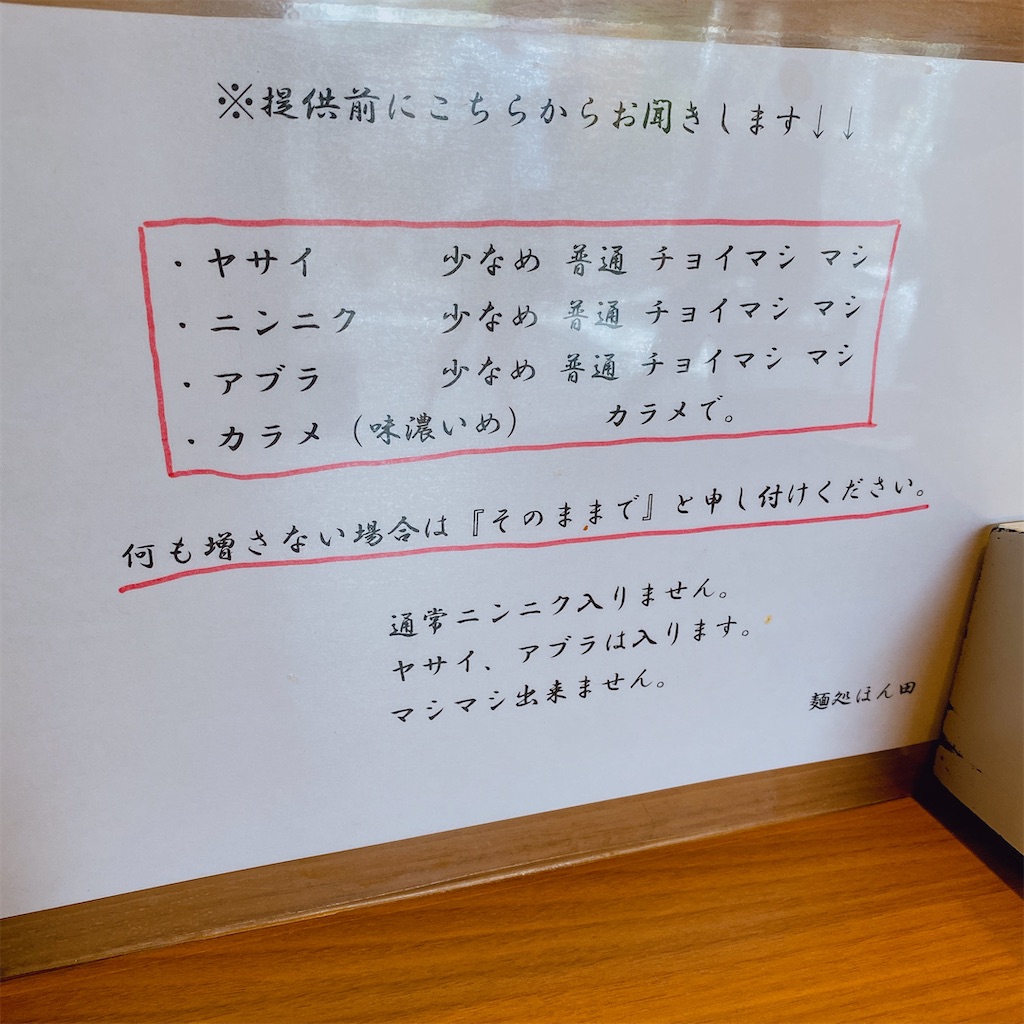 ※提供前にこちらからお聞きします↓↓
・ヤサイ 少なめ 普通 チョイマシ マシ
・ニンニク 少なめ 普通 チョイマシ マシ
・アブラ 少なめ 普通 チョイマシ マシ
・カラメ(味濃いめ) カラメで。
何も増さない場合は『そのままで』と申し付けください。
通常ニンニク入りません。
ヤサイ、アブラは入ります。
マシマシ出来ません。
麺処ほん田